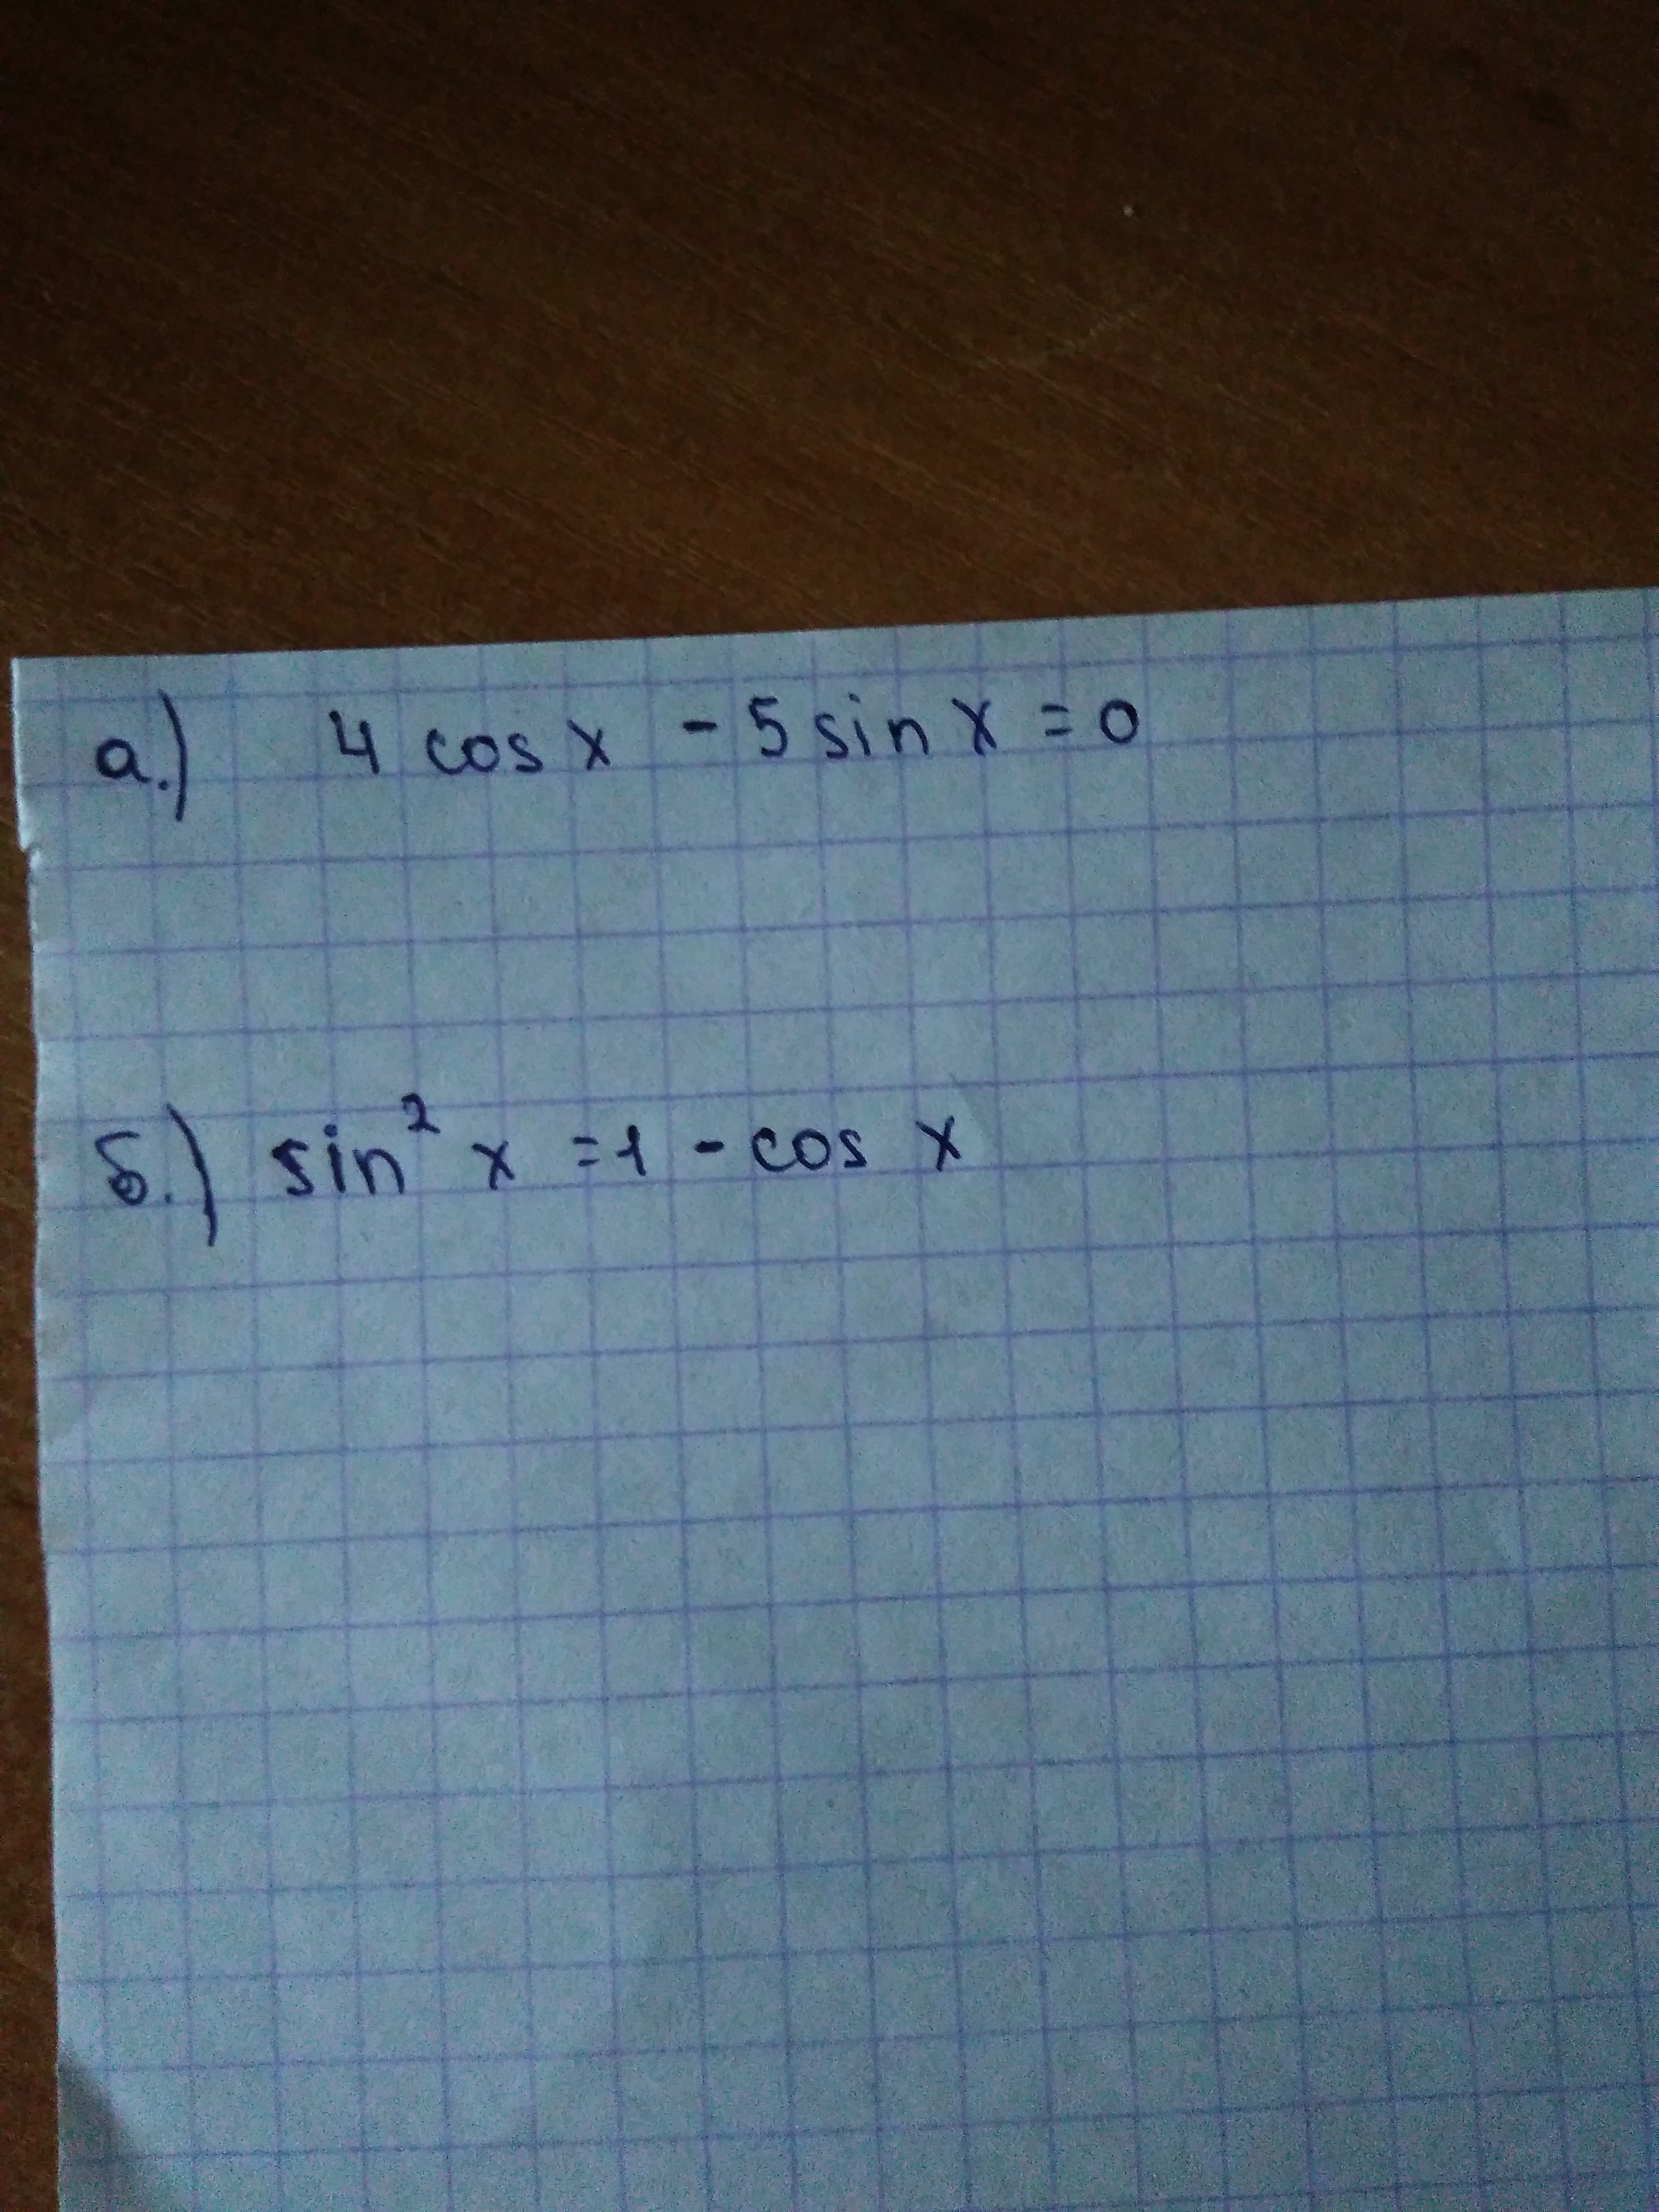 а.) 4 cos x - 5 sin x = 0
б.) sin² x = 1 - cos x